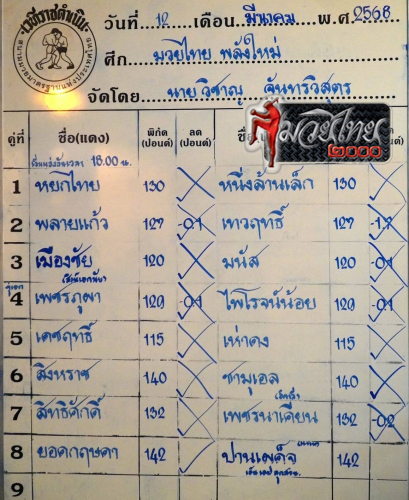 เวทีราชดำเนิน
สนามมวยมาตรฐานแห่งประเทศไทย
วันที่ 12 เดือน มีนาคม พ.ศ. 2568
ศึก มวยไทย พลังใหม่
จัดโดย นายวิชาญ จันทรวิสุตร
มวยไทย 2000
คู่ที่ ชื่อ(แดง) พิกัด (ปอนด์) ลด (ปอนด์) ชื่อ พิกัด (ปอนด์) ลด (ปอนด์)
เริ่มแข่งขันเวลา 18.00 น.
1 หยกไทย 130 หนึ่งล้านเล็ก 130
2 พลายแก้ว 127 -0.1 เทวฤทธิ์ 127 -1.7
3 เมืองชัย 120 มนัส 120 -0.1
4 เพชรภูผา 129 -0.1 ไพโรจน์น้อย 129 -0.1
5 เดชฤทธิ์ 115 เห่าดง 115
6 สิงหราช 140 ซามูเอล 140
7 สิทธิศักดิ์ 132 เพชรนาเคียน 132 -0.2
8 ยอดกฤษดา 142 ปานเพ็ชจ 142
9